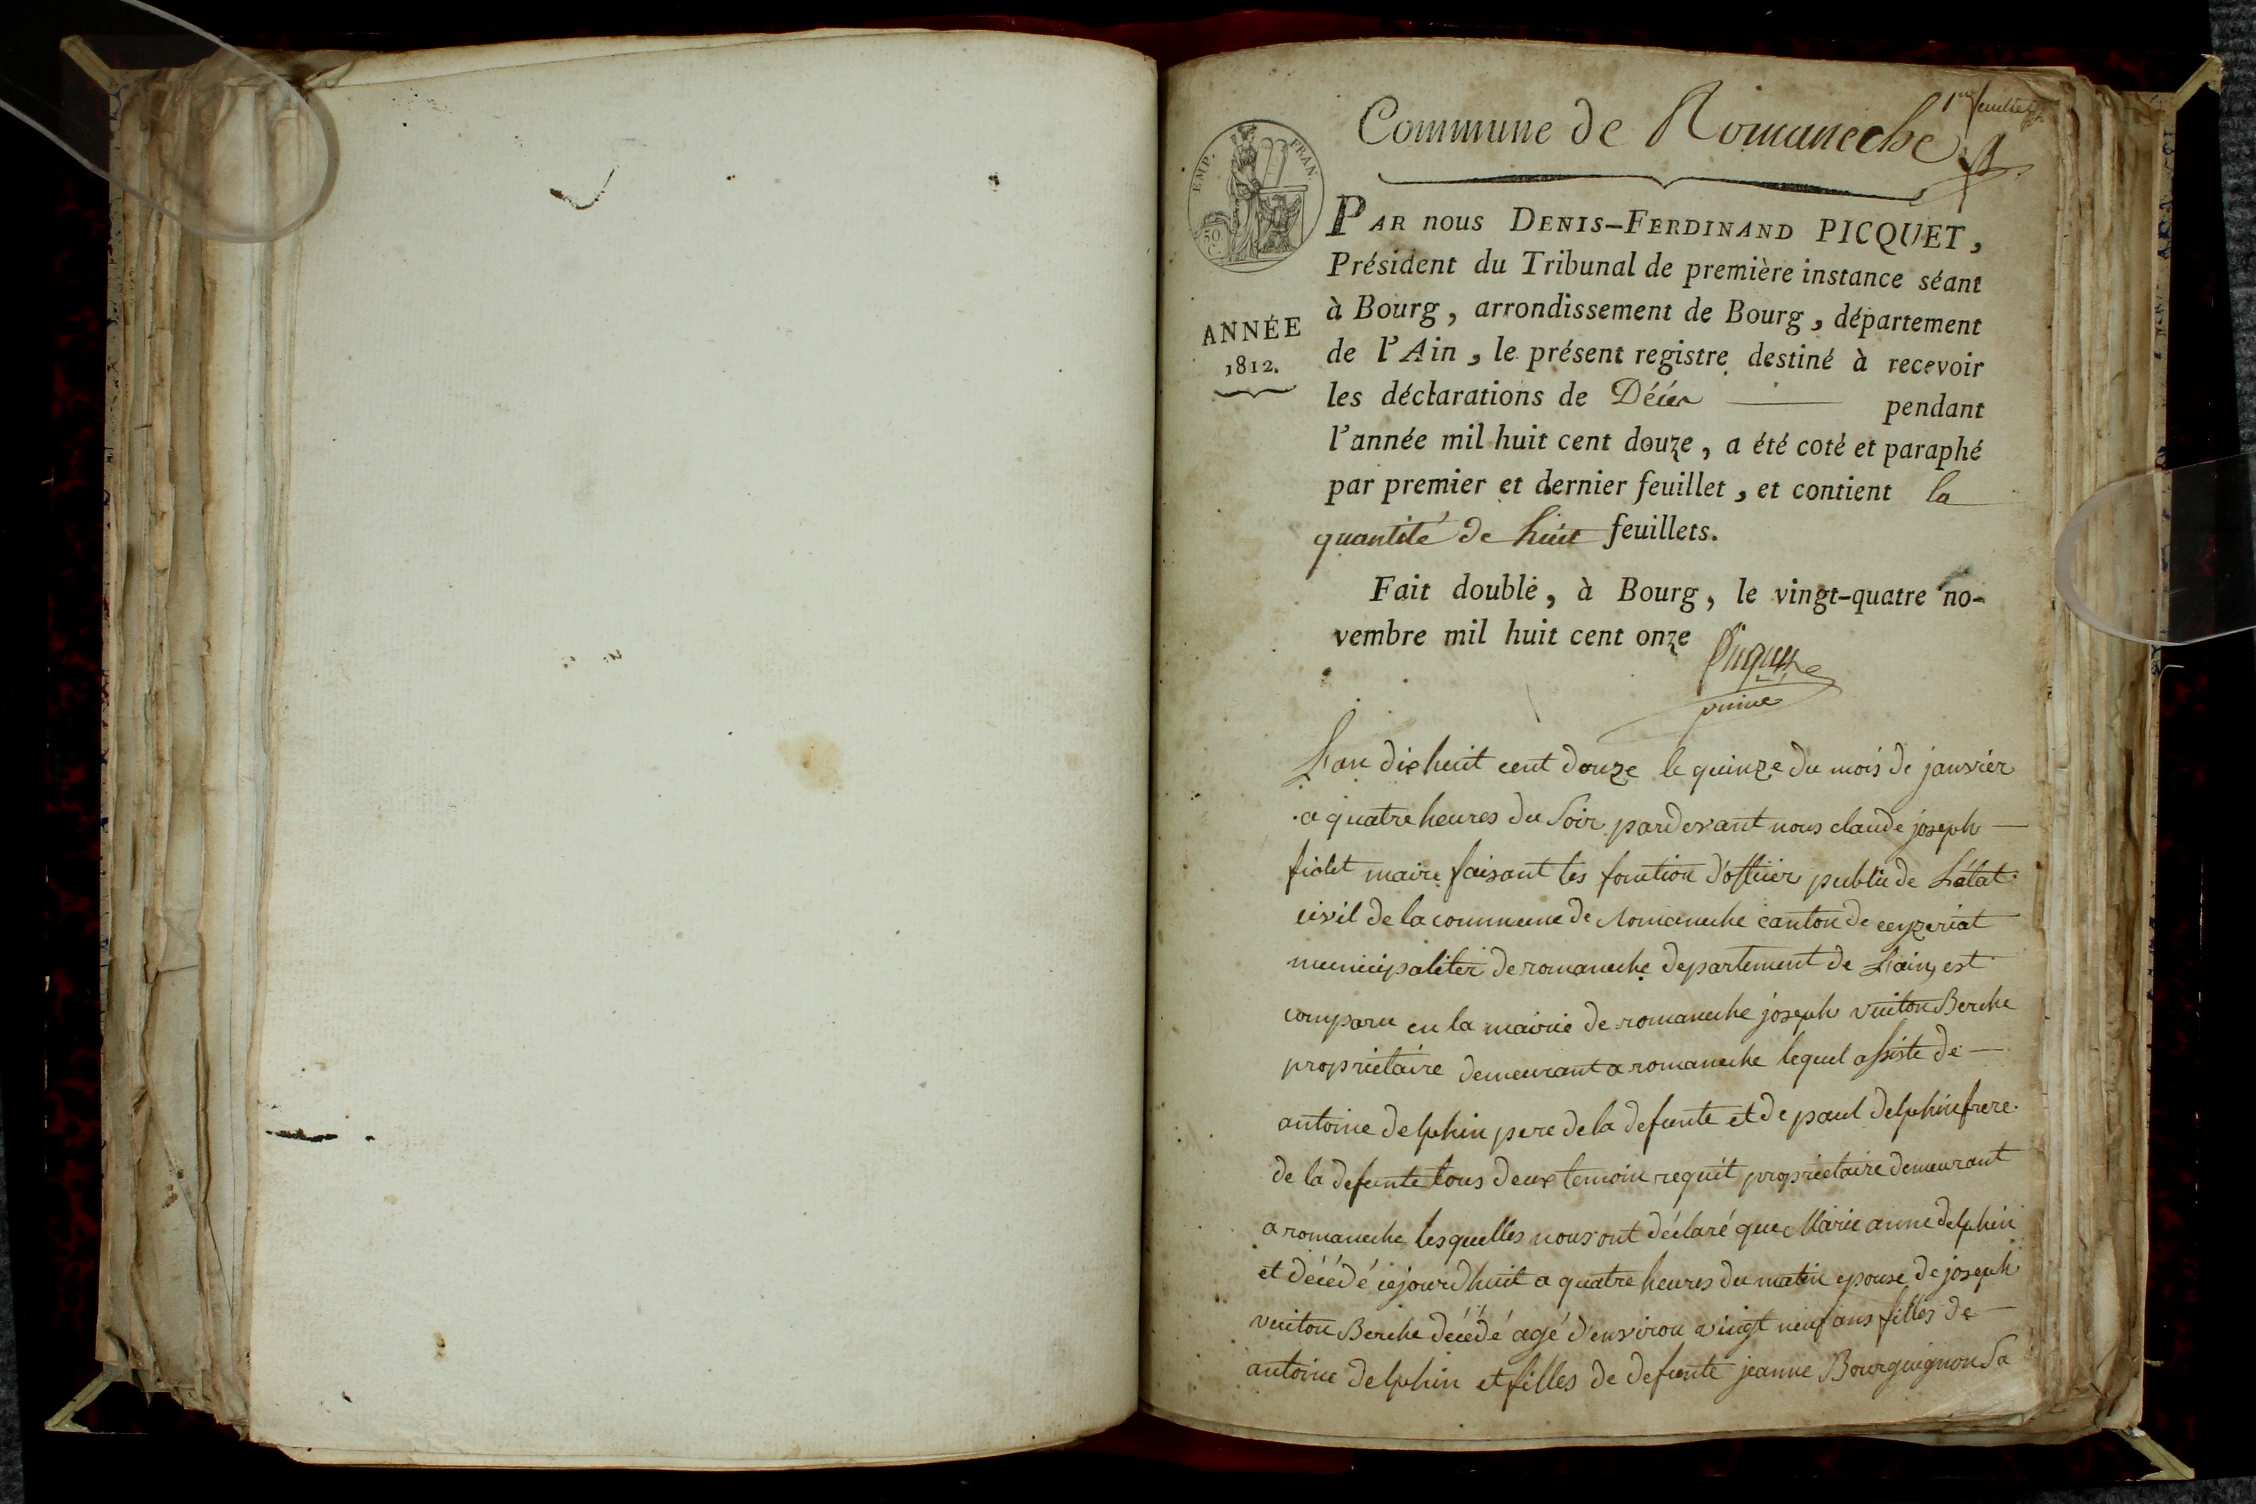 1er feuillet
Commune de Romaneche
EMP. FRAN.
50 C.
ANNÉE
1812.
PAR nous DENIS-FERDINAND PICQUET,
Président du Tribunal de première instance séant
à Bourg, arrondissement de Bourg, département
de l'Ain, le présent registre destiné à recevoir
les déclarations de Décès pendant
l'année mil huit cent douze, a été coté et paraphé
par premier et dernier feuillet, et contient la
quantité de huit feuillets.
Fait double, à Bourg, le vingt-quatre no-
vembre mil huit cent onze
L'an dix huit cent douze le quinze du mois de janvier
a quatre heures du soir pardevant nous claude joseph
fiolet maire faisant les fonction d'officier public de L'état
civil de la commune de romaneche canton de ceyzeriat
municipaliter de romaneche departement de L'ain, est
comparu en la mairie de romaneche joseph vuiton Berche
proprietaire demeurant a romaneche lequel assiste de
antoine delphin pere de la defunte et de paul delphin frere
de la defunte tous deux temoin requit proprietaire demeurant
a romaneche lesquelles nous ont déclaré que Marie anne delphin
et décédé cejourdhuit a quatre heures du matin epouse de joseph
vuiton Berche décédé agé d'environ vingt neuf ans filles de
antoine delphin et filles de defunte jeanne Bourguignon sa